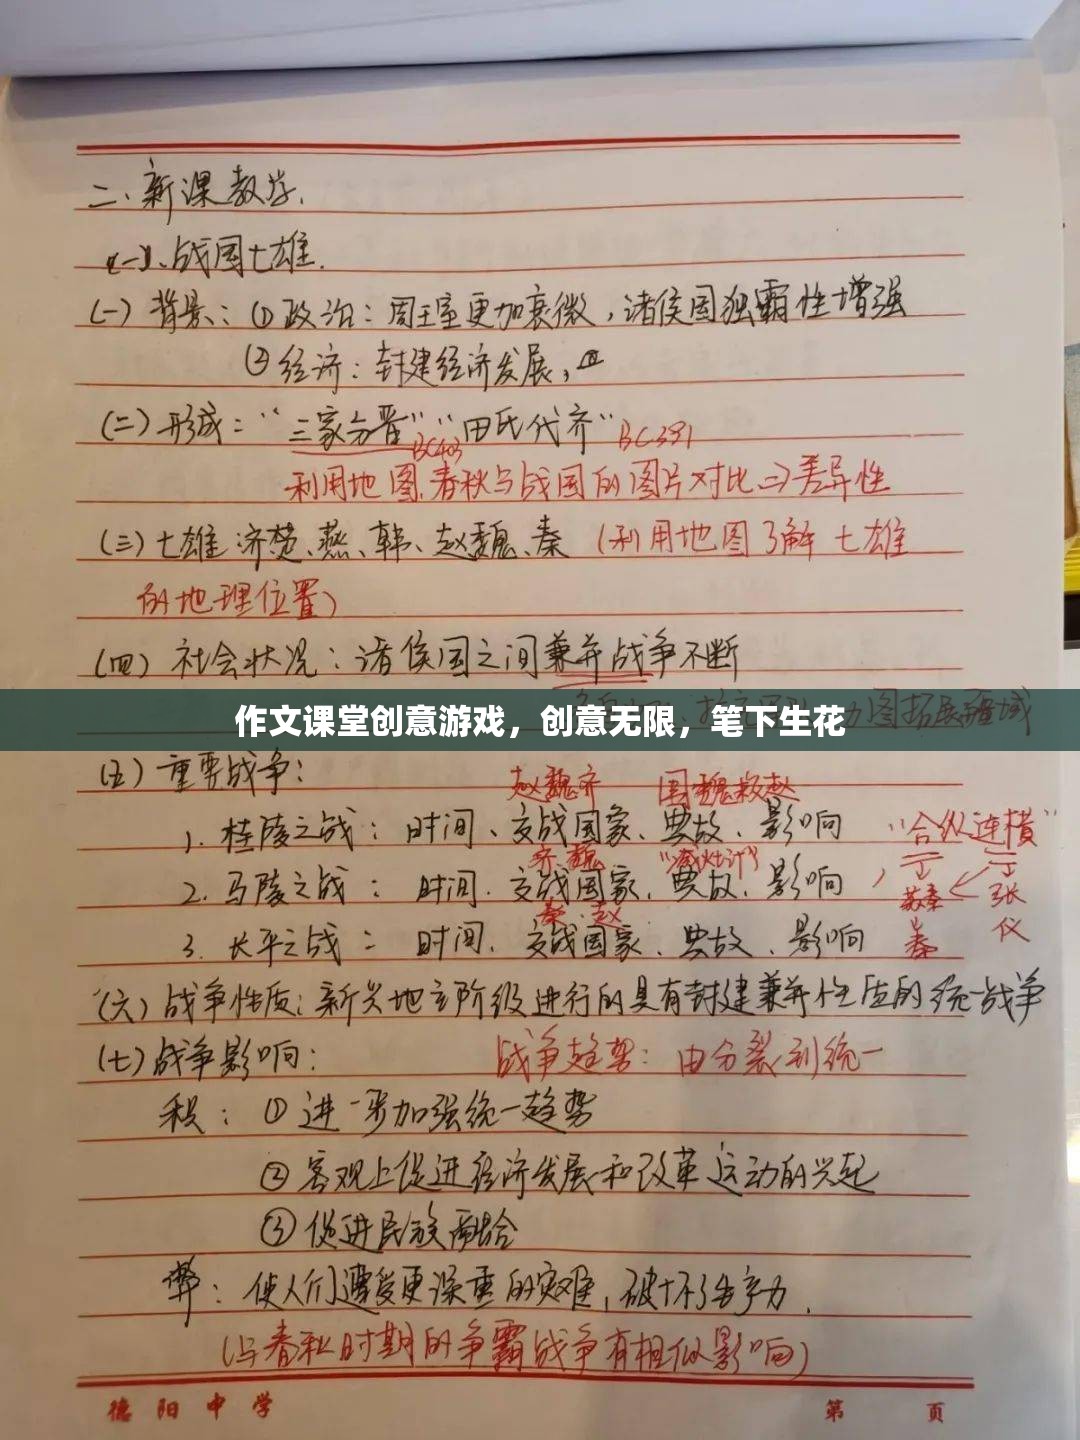 二、新课教学.
(一)、战国七雄.
(一) 背景：① 政治：周王室更加衰微，诸侯国独霸性增强
② 经济：封建经济发展，
(二) 形成："三家分晋" "田氏代齐"
BC403 BC391
利用地图.春秋与战国的图片对比⇒差异性
(三) 七雄 济楚、燕、韩、赵魏、秦 (利用地图了解七雄
的地理位置)
(四) 社会状况：诸侯国之间兼并战争不断
图拓展疆域
作文课堂创意游戏，创意无限，笔下生花
(五) 重要战争：
赵魏齐 围魏救赵
1. 桂陵之战：时间、交战国家、典故、影响 "合纵连横"
齐魏 "减灶计"
2. 马陵之战：时间.交战国家.典故.影响 苏秦 张仪
秦 赵
3. 长平之战：时间.交战国家.典故.影响 秦
(六) 战争性质：新兴地主阶级进行的具有封建兼并性质的统一战争
(七) 战争影响： 战争趋势：由分裂到统一
积：① 进一步加强统一趋势
② 客观上促进经济发展和改革运动的兴起
③ 促进民族融合
弊：使人们遭受更深重的灾难，破坏了生产力.
(与春秋时期的争霸战争有相似影响)
德阳中学 第 页